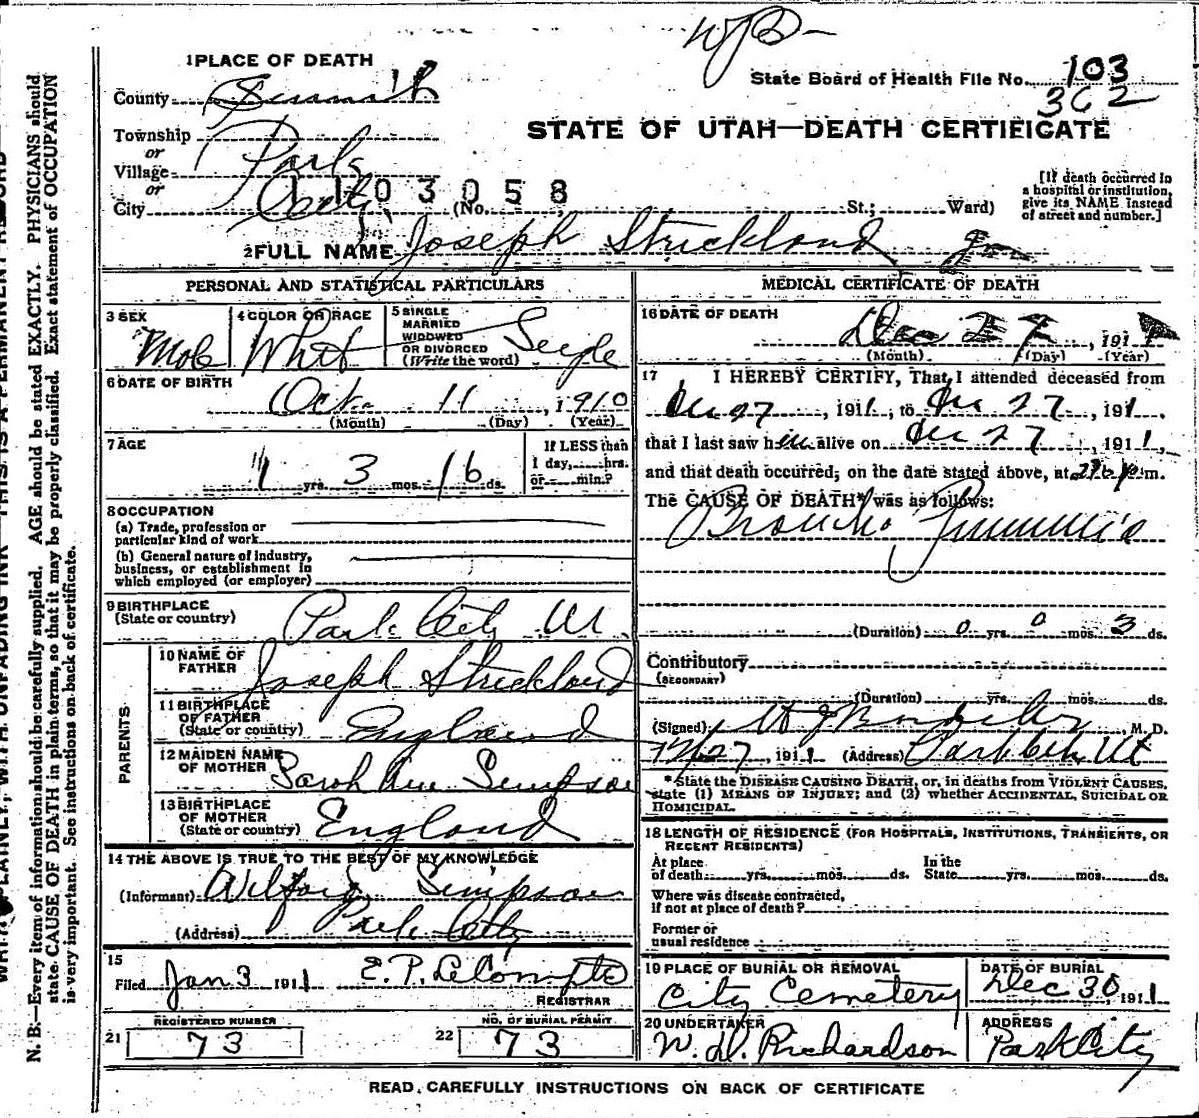 State Board of Health File No. 103
362
STATE OF UTAH—DEATH CERTIFICATE
1 PLACE OF DEATH
County Summit
Township
or
Village
or
City Park City (No. St.; Ward)
1103058
[If death occurred in
a hospital or institution,
give its NAME instead
of street and number.]
2 FULL NAME Joseph Strickland Jr
PERSONAL AND STATISTICAL PARTICULARS
3 SEX Male
4 COLOR OR RACE White
5 SINGLE
MARRIED
WIDOWED
OR DIVORCED
(Write the word) Single
6 DATE OF BIRTH
Oct. 11, 1910
(Month) (Day) (Year)
7 AGE
1 yrs. 3 mos. 16 ds.
If LESS than
1 day, hrs.
or min.?
8 OCCUPATION
(a) Trade, profession or
particular kind of work
(b) General nature of industry,
business, or establishment in
which employed (or employer)
9 BIRTHPLACE
(State or country) Park City Ut.
PARENTS
10 NAME OF
FATHER Joseph Strickland
11 BIRTHPLACE
OF FATHER
(State or country) England
12 MAIDEN NAME
OF MOTHER Sarah Ann Simpson
13 BIRTHPLACE
OF MOTHER
(State or country) England
14 THE ABOVE IS TRUE TO THE BEST OF MY KNOWLEDGE
(Informant) Wilford Simpson
(Address) Park City
15
Filed Jan 3 1911 E. P. LeCompte
REGISTRAR
21 REGISTERED NUMBER 73
22 NO. OF BURIAL PERMIT 73
MEDICAL CERTIFICATE OF DEATH
16 DATE OF DEATH
Dec 27, 1911
(Month) (Day) (Year)
17 I HEREBY CERTIFY, That I attended deceased from
Dec 27, 1911, to Dec 27, 1911,
that I last saw him alive on Dec 27, 1911,
and that death occurred, on the date stated above, at p m.
The CAUSE OF DEATH* was as follows:
Broncho Pneumonia
(Duration) 0 yrs. 0 mos. 3 ds.
Contributory
(SECONDARY)
(Duration) yrs. mos. ds.
(Signed) M. D.
12/27, 1911 (Address) Park City Ut
*State the DISEASE CAUSING DEATH, or, in deaths from VIOLENT CAUSES,
state (1) MEANS OF INJURY; and (2) whether ACCIDENTAL, SUICIDAL OR
HOMICIDAL.
18 LENGTH OF RESIDENCE (FOR HOSPITALS, INSTITUTIONS, TRANSIENTS, OR
RECENT RESIDENTS)
At place
of death yrs. mos. ds.
In the
State yrs. mos. ds.
Where was disease contracted,
if not at place of death?
Former or
usual residence
19 PLACE OF BURIAL OR REMOVAL
City Cemetery
DATE OF BURIAL
Dec 30, 1911
20 UNDERTAKER
W. D. Richardson
ADDRESS
Park City
READ CAREFULLY INSTRUCTIONS ON BACK OF CERTIFICATE
N. B.—Every item of information should be carefully supplied. AGE should be stated EXACTLY. PHYSICIANS should
state CAUSE OF DEATH in plain terms, so that it may be properly classified. Exact statement of OCCUPATION
is very important. See instructions on back of certificate.